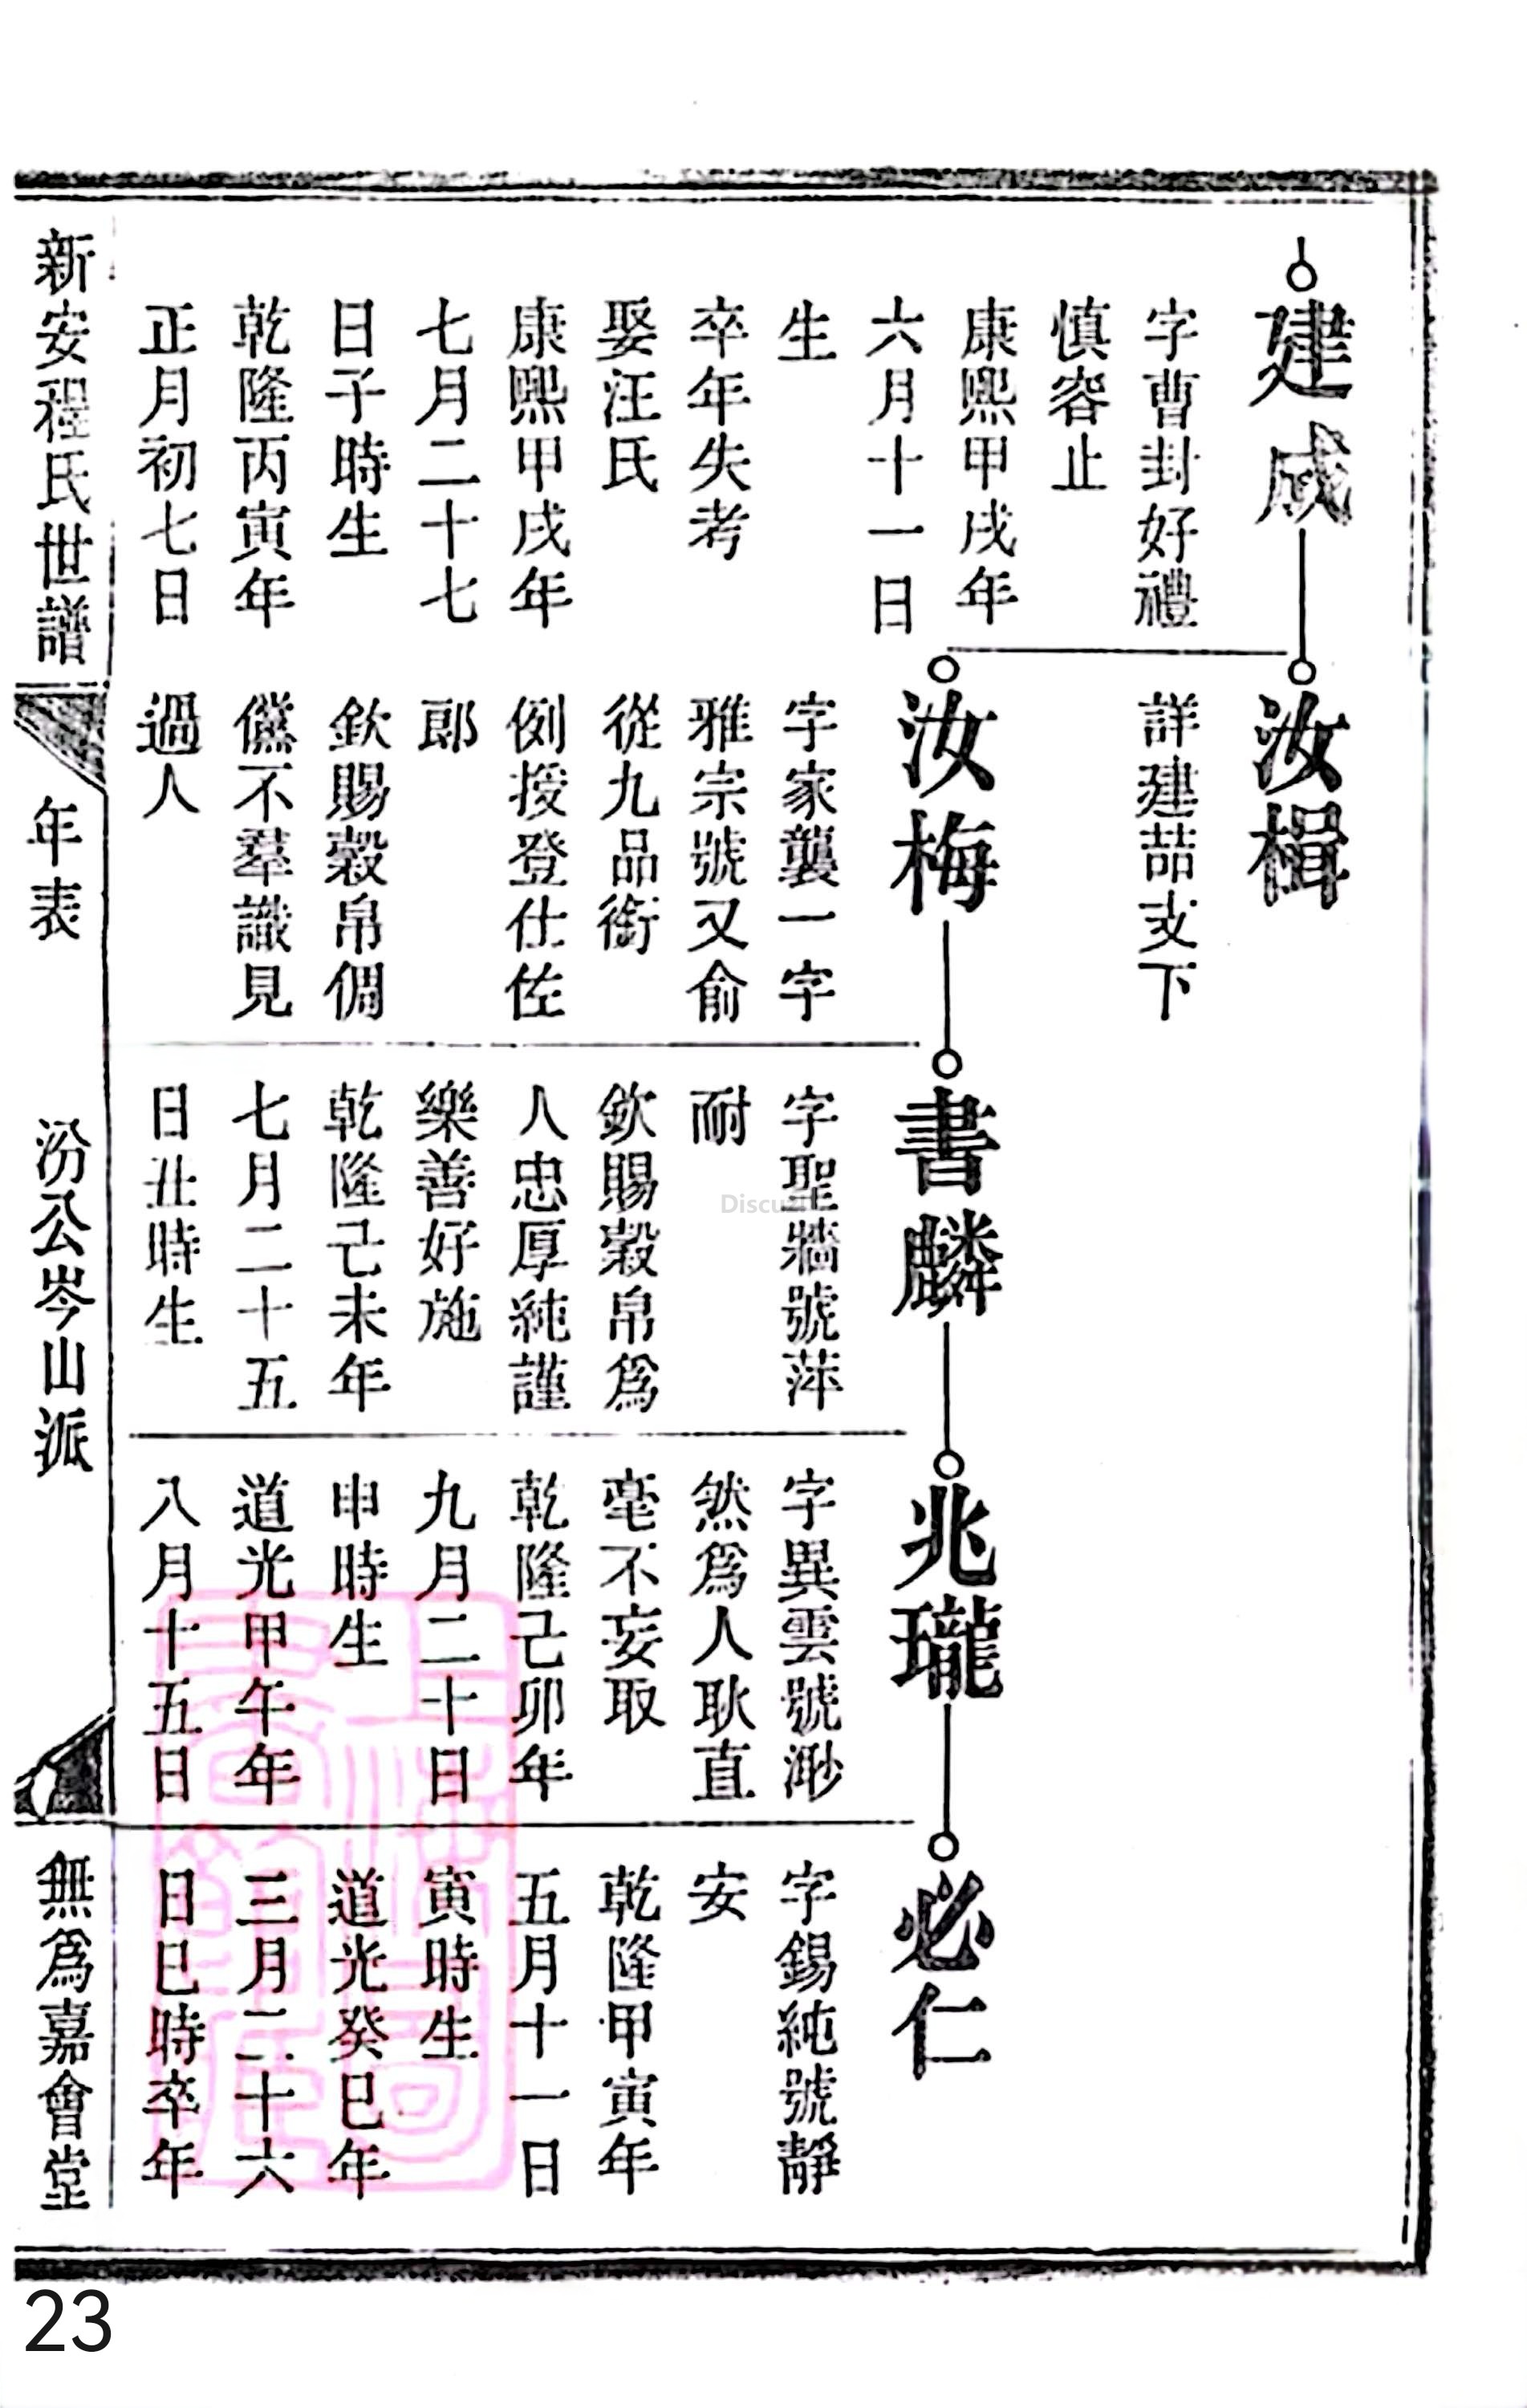 建成
字曹封好禮
慎容止
康熙甲戌年
六月十一日
生
卒年失考
娶汪氏
康熙甲戌年
七月二十七
日子時生
乾隆丙寅年
正月初七日
汝楫
詳建喆支下
汝梅
字家襲一字
雅宗號又俞
從九品銜
例授登仕佐
郎
欽賜穀帛倜
儻不羣識見
過人
書麟
字聖牆號萍
耐
欽賜穀帛爲
人忠厚純謹
樂善好施
乾隆己未年
七月二十五
日丑時生
兆瓏
字異雲號渺
然爲人耿直
毫不妄取
乾隆己卯年
九月二十日
申時生
道光甲午年
八月十五日
必仁
字錫純號靜
安
乾隆甲寅年
五月十一日
寅時生
道光癸巳年
三月二十六
日巳時卒年
新安程氏世譜
年表
汾公岑山派
無爲嘉會堂
23